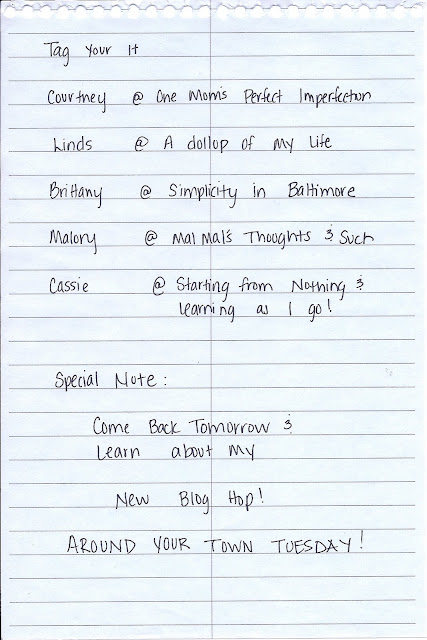 Tag Your It
Courtney @ One Mom's Perfect Imperfection
Linds @ A dollop of My Life
Brittany @ Simplicity in Baltimore
Malory @ Mal Mal's Thoughts & Such
Cassie @ Starting from Nothing &
Learning as I go!
Special Note:
Come Back Tomorrow &
Learn about My
New Blog Hop!
AROUND YOUR TOWN TUESDAY!